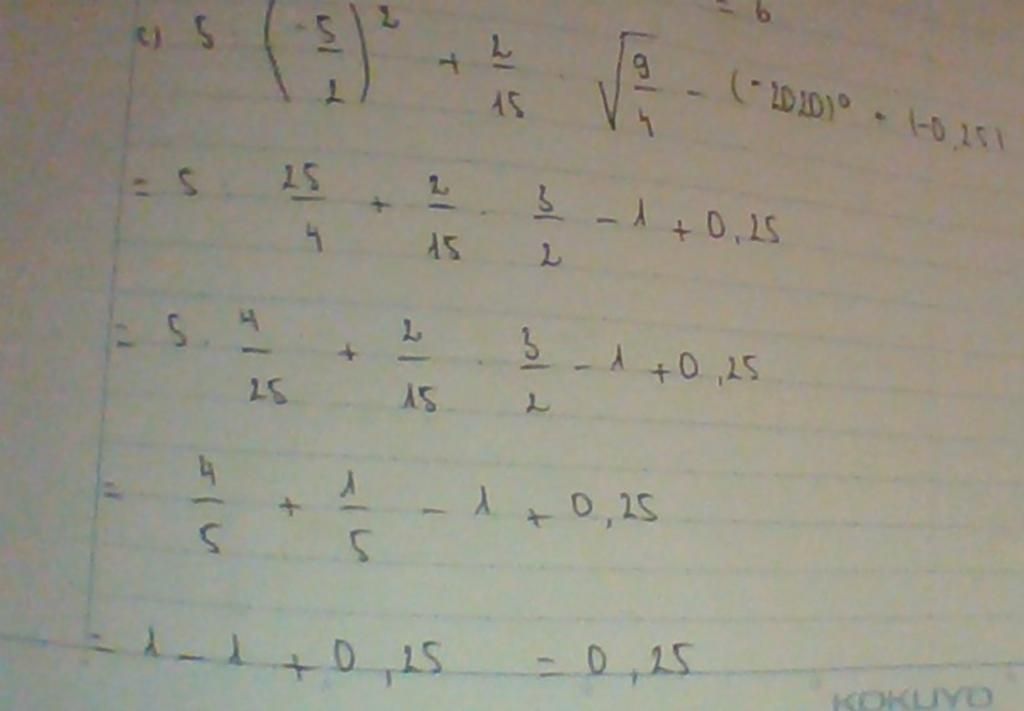 = 6
c) 5 (-5/2)² + 2/15 · √(9/4) - (-2020)⁰ + |-0,25|
= 5 25/4 + 2/15 · 3/2 - 1 + 0,25
= 5 · 4/25 + 2/15 · 3/2 - 1 + 0,25
= 4/5 + 1/5 - 1 + 0,25
= 1 - 1 + 0,25 = 0,25
KOKUYO